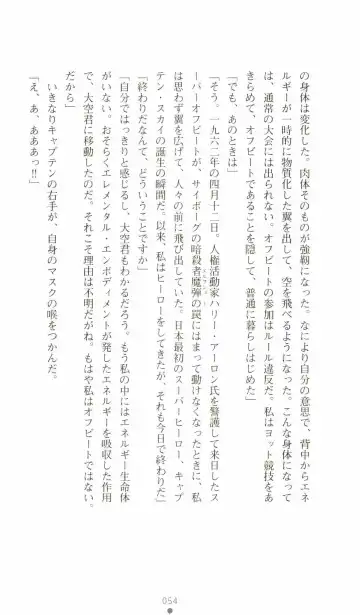 の身体は変化した。肉体そのものが強靭になった。なにより自分の意思で、背中からエネ
ルギーが一時的に物質化した翼を出して、空を飛べるようになった。こんな身体になって
は、通常の大会には出られない。オフビートの参加はルール違反だ。私はヨット競技をあ
きらめて、オフビートであることを隠して、普通に暮らしはじめた」
「でも、あのときは」
「そう。一九六二年の四月十二日。人権活動家ハリー・アーロン氏を警護して来日したス
ーパーオフビートが、サイボーグの暗殺者魔弾の罠にはまって動けなくなったときに、私
は思わず翼を広げて、人々の前に飛び出していた。日本最初のスーパーヒーロー、キャプ
テン・スカイの誕生の瞬間だ。以来、私はヒーローをしてきたが、それも今日で終わりだ」
「終わりだなんて、どういうことですか」
「自分ではっきりと感じるし、大空君もわかるだろう。もう私の中にはエネルギー生命体
がいない。おそらくエレメンタル・エンボディメントが発したエネルギーを吸収した作用
で、大空君に移動したのだ。それこそ理由は不明だがね。もはや私はオフビートではない。
だから」
いきなりキャプテンの右手が、自身のマスクの喉をつかんだ。
「え、あ、あああっ!!」
054